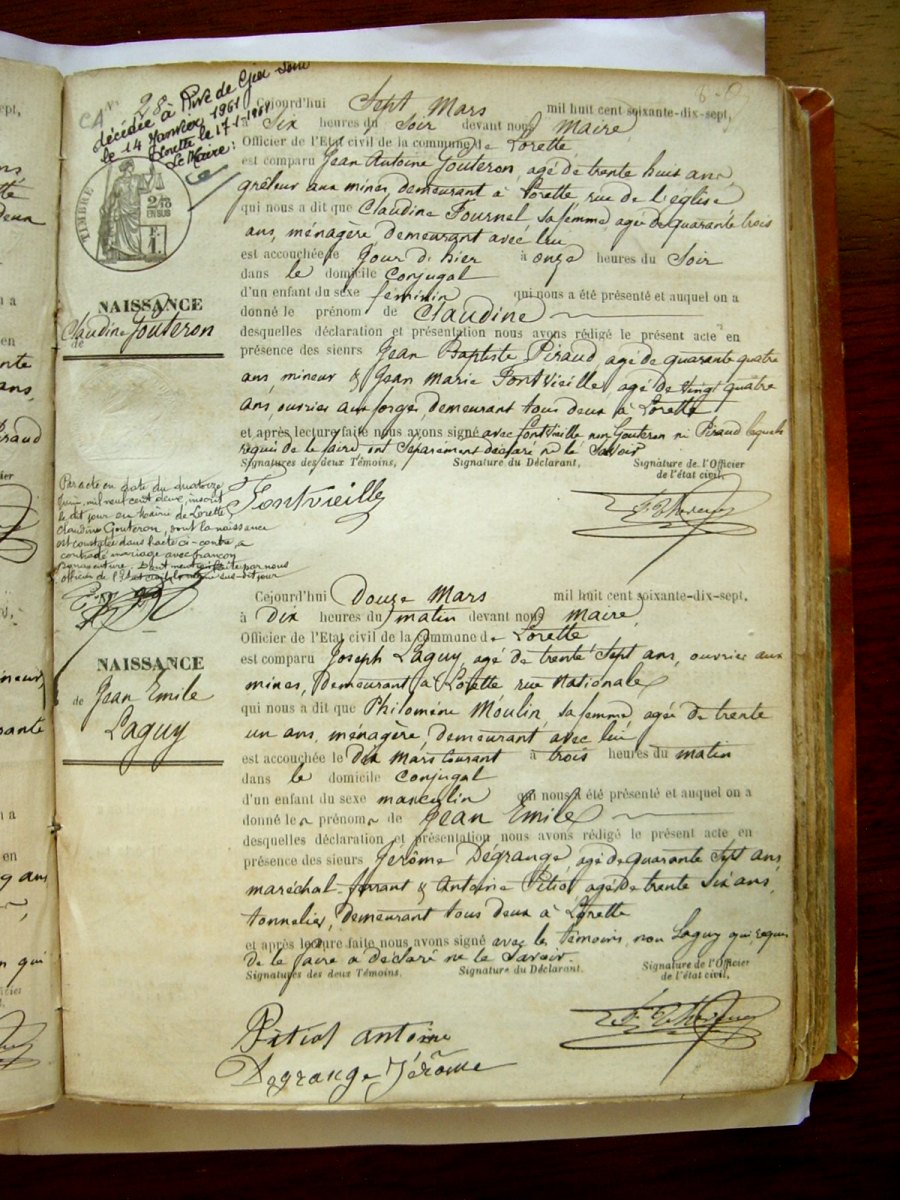 28
décédée à Rive de Gier Loire
le 14 Janvier 1961
Lorette le 17-1-1961
Le Maire:
TIMBRE
2/10
EN SUS
NAISSANCE
de Claudine Gouteron
Cejourd'hui Sept Mars mil huit cent soixante-dix-sept,
Six heures du Soir devant nous Maire
Officier de l'Etat civil de la commune de Lorette
est comparu Jean Antoine Gouteron, agé de trente huit ans,
grêleur aux mines, demeurant à Lorette rue de l'église
qui nous a dit que Claudine Fournel, sa femme, agée de quarante trois
ans, ménagère demeurant avec lui
est accouchée le Jour d'hier à onze heures du Soir
dans le domicile Conjugal
d'un enfant du sexe féminin qui nous a été présenté et auquel on a
donné le prénom de Claudine
desquelles déclaration et présentation nous avons rédigé le présent acte en
présence des sieurs Jean Baptiste Piraud agé de quarante quatre
ans, mineur & Jean Marie Fontvieille, agé de vingt quatre
ans, ouvrier aux forges, demeurant tous deux à Lorette
et après lecture faite nous avons signé avec Fontvieille non Gouteron ni Piraud lesquels
requis de le faire ont Séparément déclaré ne le Savoir
Signatures des deux Témoins, Signature du Déclarant, Signature de l'Officier
de l'état civil,
Fontvieille
Par acte en date du quatorze
Juin, mil neuf cent deux, inscrit
le dit jour en Mairie de Lorette
Claudine Gouteron, dont la naissance
est constatée dans l'acte ci-contre a
contracté mariage avec Françon
Bonaventure. Dont mention faite par nous
officier de l'Etat civil le même sus-dit jour
NAISSANCE
de Jean Emile
Laguy
Cejourd'hui Douze Mars mil huit cent soixante-dix-sept,
à Dix heures du matin devant nous Maire
Officier de l'Etat civil de la Commune de Lorette
est comparu Joseph Laguy, agé de trente Sept ans, ouvrier aux
mines, demeurant à Lorette rue Nationale
qui nous a dit que Philomène Moulin, sa femme, agée de trente
un ans, ménagère, demeurant avec lui
est accouchée le Dix Mars Courant à trois heures du matin
dans le domicile Conjugal
d'un enfant du sexe masculin qui nous a été présenté et auquel on a
donné les prénoms de Jean Emile
desquelles déclaration et présentation nous avons rédigé le présent acte en
présence des sieurs Jérôme Dégrange, agé de quarante Sept ans
maréchal-ferrant & Antoine Pétiot agé de trente Six ans,
tonnelier, demeurant tous deux à Lorette
et après lecture faite nous avons signé avec les témoins, non Laguy qui, requis
de le faire a déclaré ne le Savoir.
Signatures des deux Témoins. Signature du Déclarant. Signature de l'Officier
de l'état civil,
Pétiot antoine
Degrange Jérôme